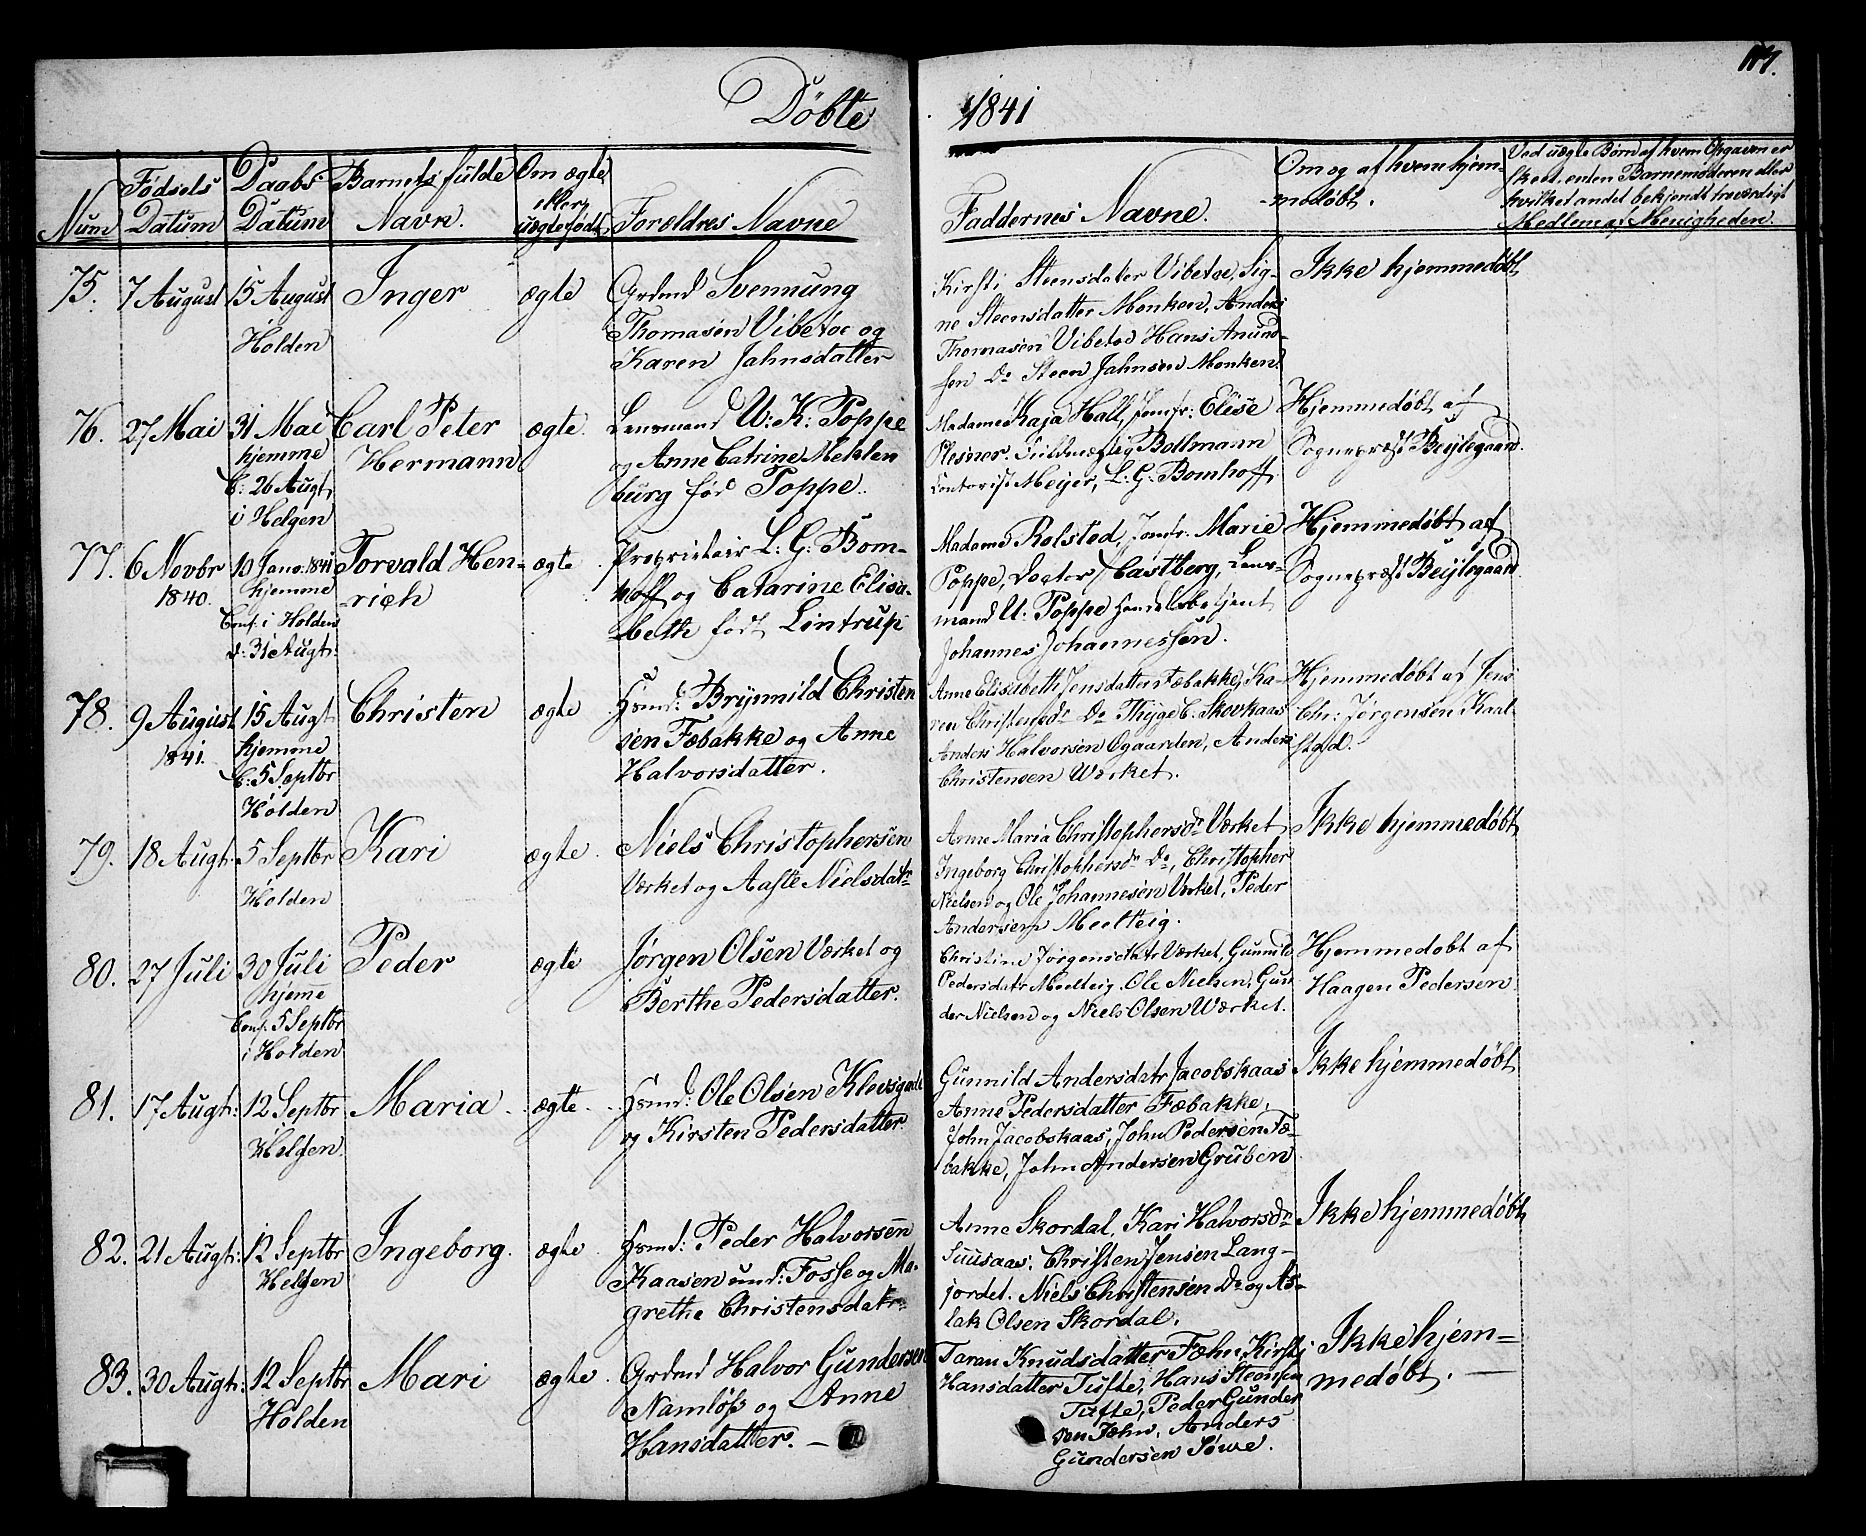 Döbte
1841
Num
Fødsels Datum
Daabs Datum
Barnets fulde Navn.
Om ægte eller uægte født
Forældres Navne
Faddernes Navne.
Om og af hvem hjem-
medøbt.
Ved uægte Børn af hvem Opgaven er
skeet, enten Barnemoderen eller
hvilket andet bekjendt troværdigt
Medlem af Menigheden.
75. 7 August
15 August
Holden
Inger
ægte
Grdmd Svennung
Thomasen Vibetoe og
Karen Jahnsdatter
Kirsti Steensdatter Vibetoe, Sig-
ne Steensdatter Monken, Anders
Thomasen Vibetoe Hans Anund-
sen Do Steen Jahnsen Monken.
Ikke hjemmedøbt
76. 27 Mai
31 Mai
hjemme
C: 26 Augt
i Helgen
Carl Peter
Hermann
ægte.
Lensmand U: K: Poppe
og Anne Catrine Meklen
burg fød Poppe.
Madame Kaja Hall, Jomfr: Elise
Plesner. Fuldmægtig Bollmann
Contorist Meijer, L: G: Bomhoff
Hjemmedøbt af
Sognepræst Beijlegaard.
77. 6 Novbr
1840.
10 Jan: 1841
hjemme
Conf: i Holden
d: 31 Augt:
Torvald Hen-
-rich
ægte
Proprietair L: G: Bom-
hoff og Catarine Elisa-
-beth født Lintrup
Madame Rolsted, Jomfr: Marie
Poppe, Doctor Castberg, Lens-
mand U: Poppe Handelsbetjent
Johannes Johannessen.
Hjemmedøbt af
Sognepræst Beijlegaard
78. 9 August
1841.
15 Augt
hjemme
C: 5 Septbr
Holden
Christen
ægte
Hsmd: Brynnild Christen
sen Fæbakke og Anne
Halvorsdatter.
Anne Elisabeth Jensdatter Fæbakke, Ka-
ren Christensdr Do Thÿge C. Skovkaas
Anders Halvorsen Ogaarden, Anders
Christensen Værket.
Hjemmedøbt af Jens
Chr: Jørgensen Kaal-
stad.
79. 18 Augt:
5 Septbr
Holden
Kari
ægte.
Niels Christophersen
Værket og Aaste Nielsdatr
Anne Maria Christophersdr Værket
Ingeborg Christophersdr Do, Christopher
Nielsen og Ole Johannesen Værket, Peder
Andersen Meelteig.
Ikke hjemmedøbt
80. 27 Juli
30 Juli
hjeme
Conf: 5 Septbr
i Holden
Peder
ægte
Jørgen Olsen Værket og
Berthe Pedersdatter.
Christine Jørgensdatr Værket, Gunnild
Pedersdatr Meelteig. Ole Nielsen, Gun
der Nielsen og Niels Olsen Værket.
Hjemmedøbt af
Haagen Pedersen
81. 17 Augt:
12 Septbr
Helgen
Maria
ægte
Hsmd: Ole Olsen
og Kirsten Pedersdatter
Gunnild Andersdatr Jacobskaas
Anne Pedersdatter Fæbakke,
John Jacobskaas, John Pedersen Fæ-
bakke, John Andersen Gruben
Ikke hjemmedøbt
82. 21 Augt:
12 Septbr
Helgen
Ingeborg.
ægte
Hsmd: Peder Halvorsen
Kaasen und: Fosse og Ma-
grethe Christensdatr
Anne Skordal, Kari Halvorsdr
Suusaas. Christen Jensen Lang-
jordet. Niels Christensen Do og As-
lak Olsen Skordal.
Ikke hjemmedøbt
83. 30 Augt:
12 Septbr
Holden
Mari
ægte.
Grdmd Halvor Gundersen
Namløs og Anne
Hansdatter. —
Taran Knudsdatter Fæhn, Kirsti
Hansdatter Tufte, Hans Steensen
Tufte, Peder Gunder
sen Fæhn, Anders
Gundersen Söwe.
Ikke hjem-
medøbt.